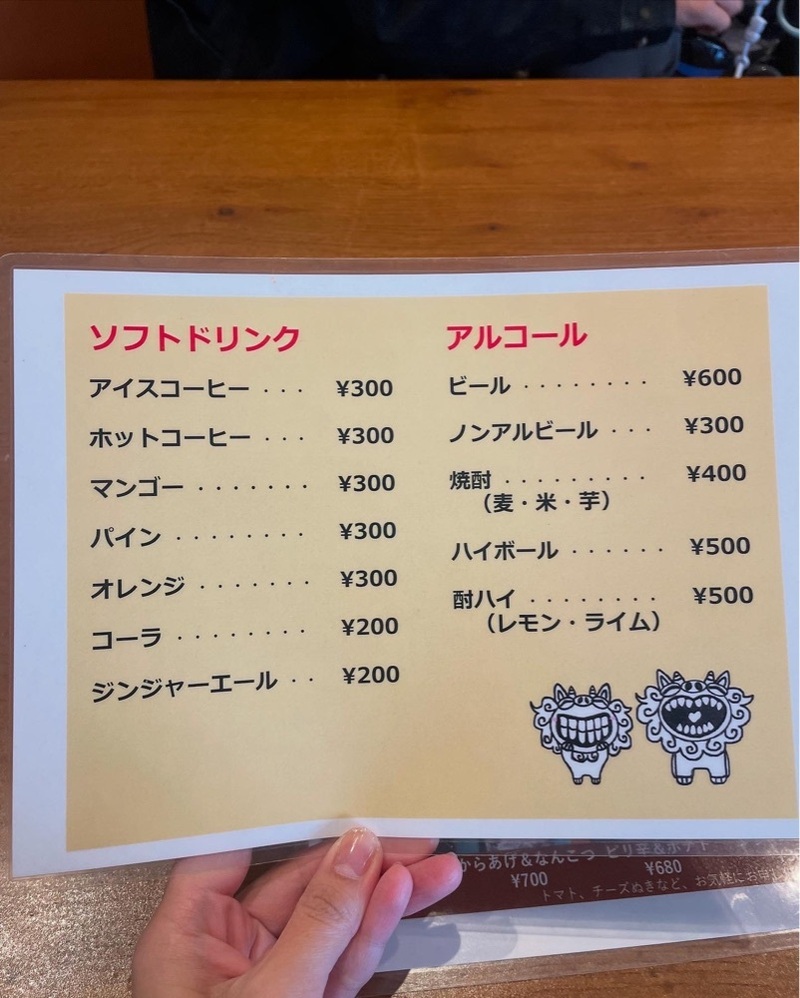 ソフトドリンク
アイスコーヒー ··· ¥300
ホットコーヒー ··· ¥300
マンゴー ······· ¥300
パイン ········ ¥300
オレンジ ······· ¥300
コーラ ········ ¥200
ジンジャーエール ·· ¥200
アルコール
ビール ········ ¥600
ノンアルビール ··· ¥300
焼酎 ········· ¥400
(麦・米・芋)
ハイボール ······ ¥500
酎ハイ ········ ¥500
(レモン・ライム)
からあげ&なんこつ ピリ辛&ポテト
¥700 ¥680
トマト、チーズぬきなど、お気軽にお申